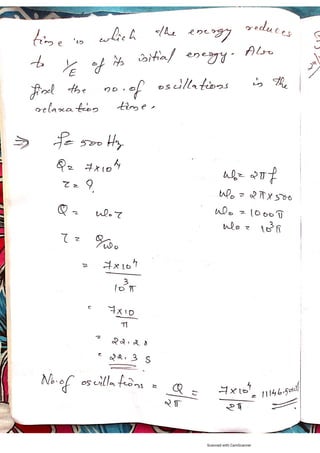 time in which the energy reduces
to 1/E of its initial energy. Also
find the no. of oscillations in the
relaxation time.
⇒ f = 500 Hz
Q = 7×10⁴
τ = ?
ω₀ = 2πf
ω₀ = 2π×500
Q = ω₀τ
ω₀ = 1000π
ω₀ = 10³π
τ = Q/ω₀
= 7×10⁴/10³π
= 7×10/π
= 22.2 s
= 22.3 s
No. of oscillations = Q/2π = 7×10⁴/2π = 11146.
Scanned with CamScanner